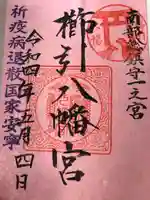 南部総鎮守一之宮
櫛引八幡宮
令和四年五月四日
新疫病退散国家安寧